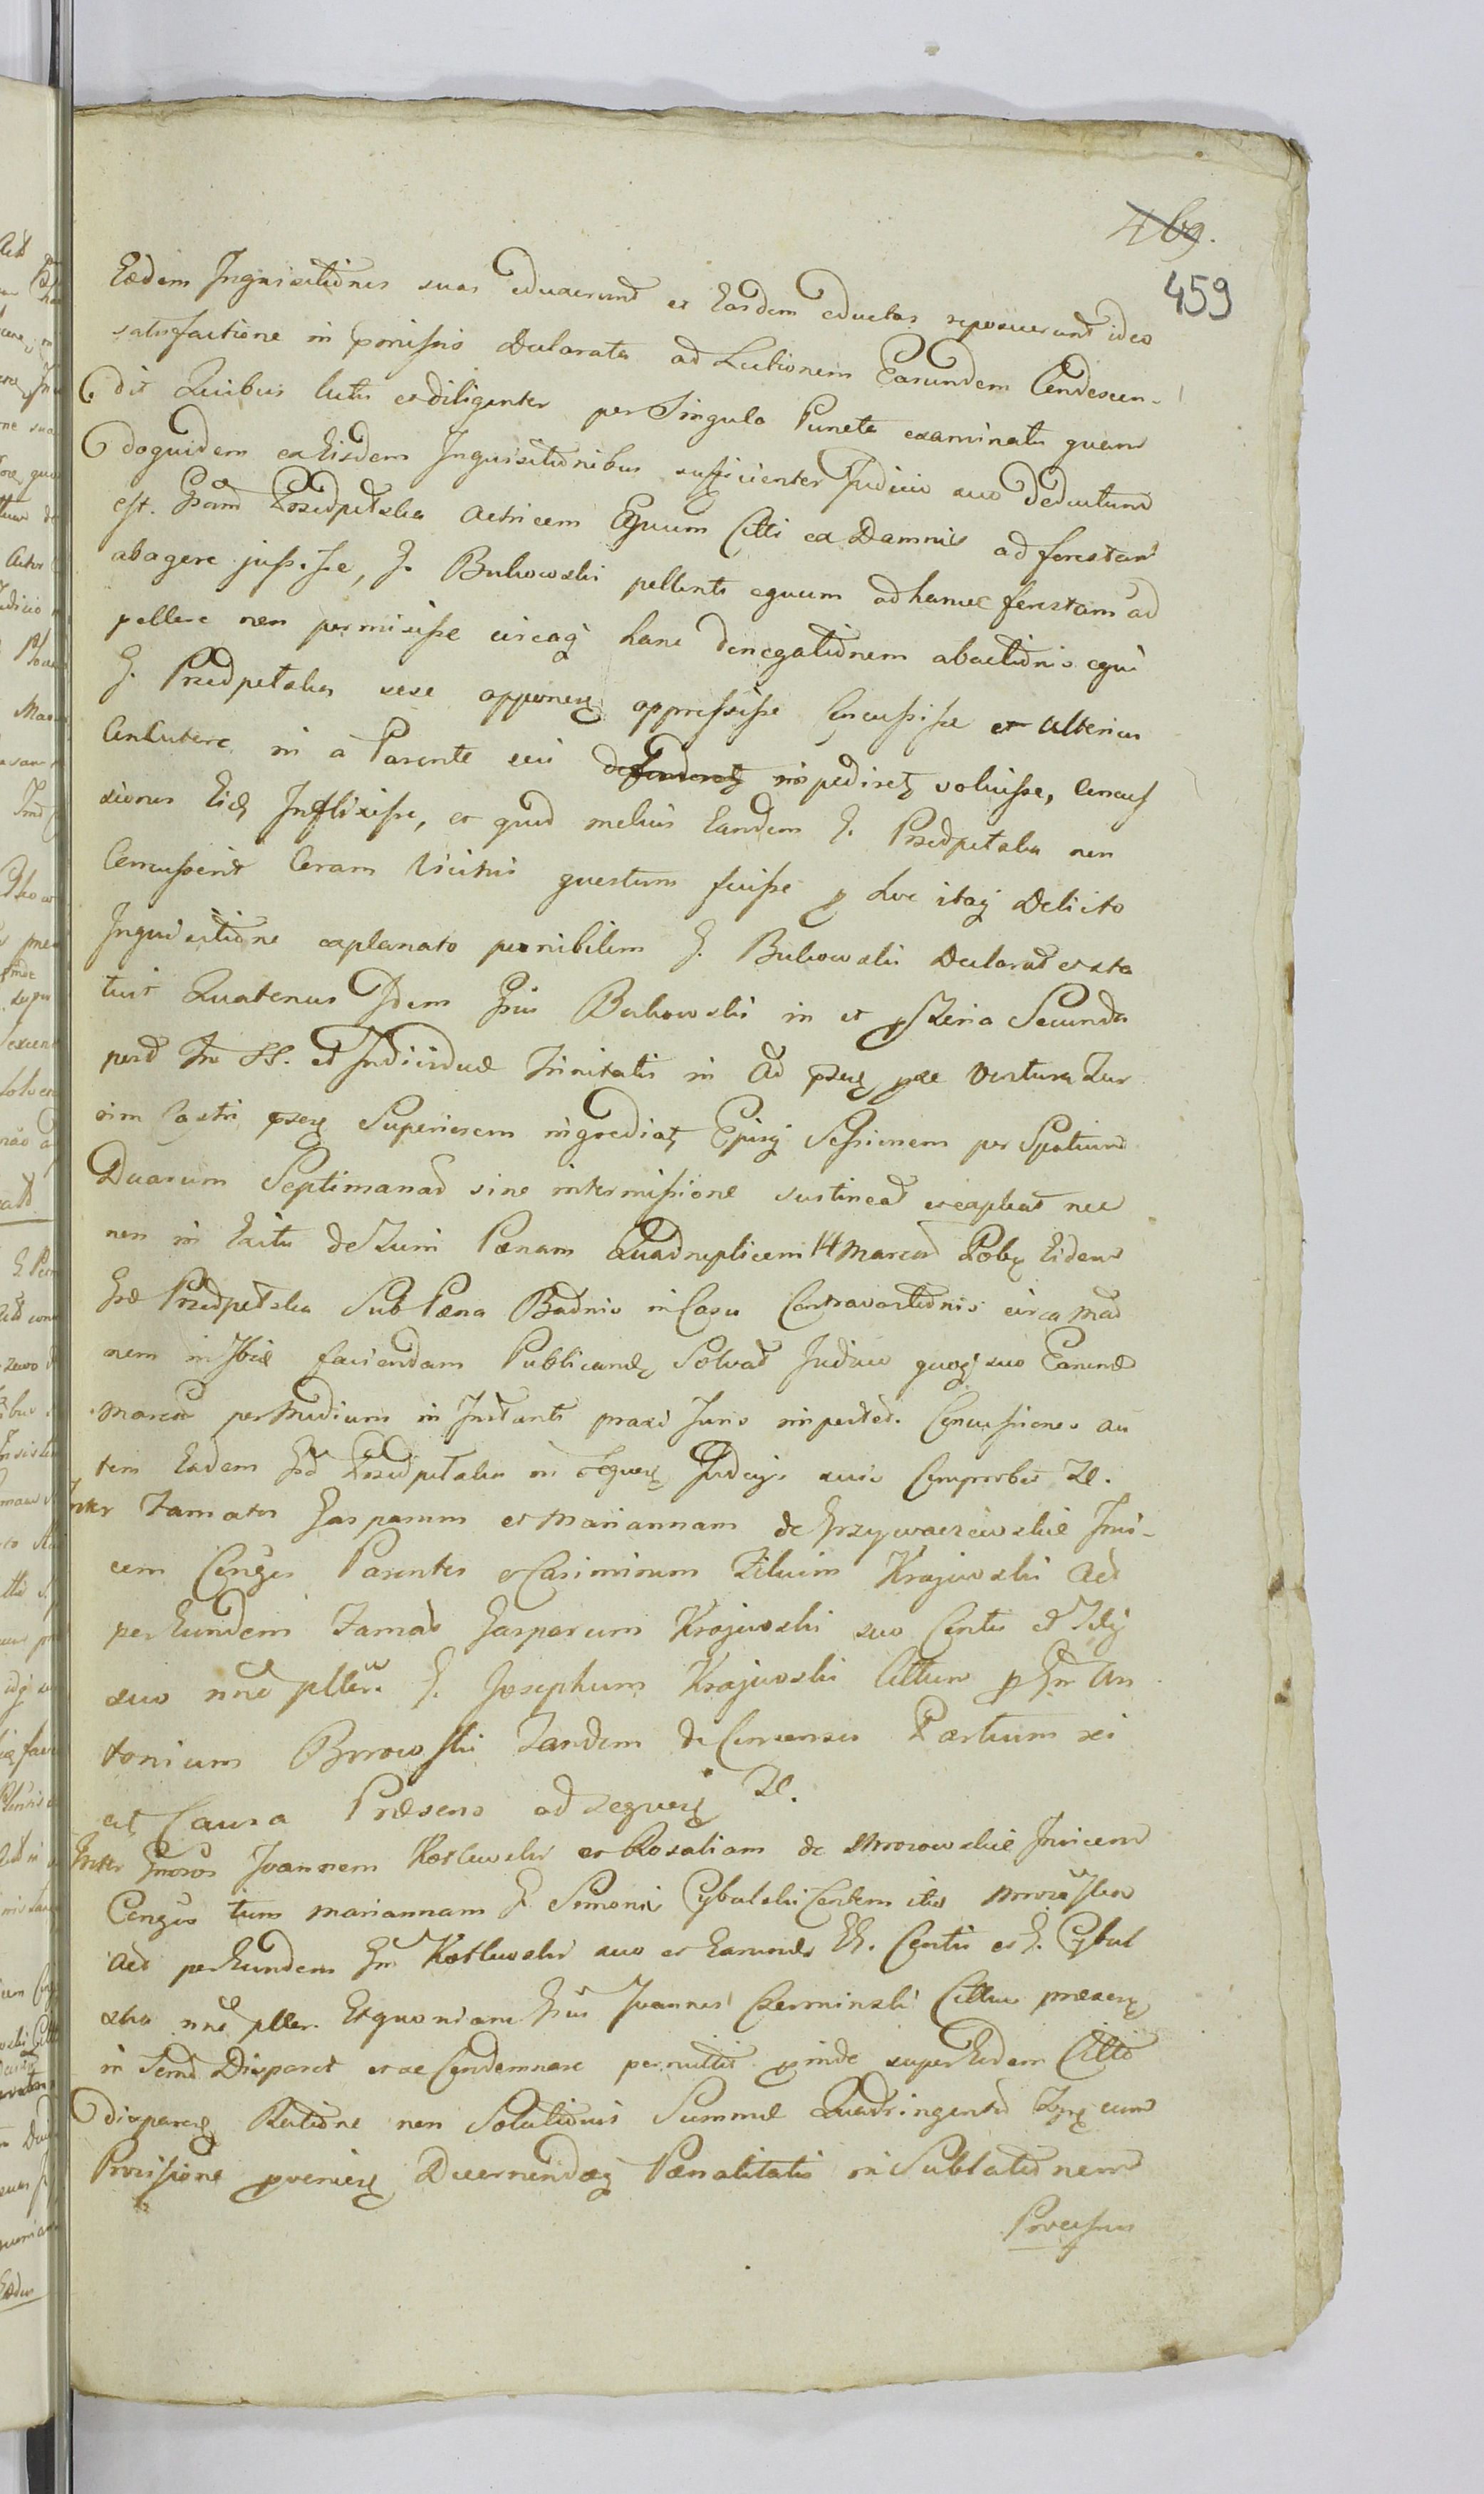 469.
459
Eædem Inquisitiones suas eduxerunt et Easdem eductas reposuerunt ideo
satisfactione in pmissis declarata ad Lectionem Earundem Condescen-
dit Quibus lectis et diligenter per Singula Puncta examinatis quan
doquidem ex Eisdem Inquisitionibus sufficienter Judicio suo deductum
est. Gsam Przedpełska Actricem Equum Citti ex Damnis ad forestam
abagere jussisse, G. Bukowski pellenti equum ad hancce forestam ad
pellere non permisisse circaq hanc denegationem abactionis equi
G. Przedpełska sese opponen oppressisse Concussisse et ulterius
Concutere ni a Parente sui defenderet impediret voluisse, Concus
siones Eid Inflixisse, et quod melius Eandem G. Przedpełska non
Concusserit Coram Vicinis questum fuisse p hoc itaq Delicto
Inquisitione explanato poenibilem G. Bukowski Declarat et sta
tuit Quatenus Idem Gsus Bukowski in et p Feria Secunda
post Fm SS. et Individuæ Trinitatis in Ad psen pæ Ventura Tur
rim Castri psen Superiorem ingrediat Ejusq Sessionem per Spatium
Duarum Septimanar sine intermissione sustineat et expleat nec
non in Exitu de Turri Pœnam Quadruplicem 14 Marcar Polo Eidem
Gsæ Przedpełska Sub Pœna Bannis in Casu Contraventionis circa
nem in Fbiæ faciendam Publicand Solvat Judicio quoq suo Earund
Marcar per Medium in Instanti praxi Juris impertet. Concussiones au
tem Eadem Gsa Przedpełska in Sequen Judicijs suis Comprobet Zc.
Inter Famatos Gasparum et Mariannam de Grzywaczewskie Invi-
cem Conges Parentes et Casimirum Filium Krajewski Act
per Eundem Famat Gasparum Krajewski suo Contis et Filij
suo nne plter. G. Josephum Krajewski Cittum p Gm An
tonium Brrowski Tandem de Consensu Partium rei
at Causa Præsens ad sequen Zc.
Inter Gnosos Joannem Kotlewski et Rosaliam de Mrozowskie Invicem
Conges tum Mariannam G. Simonis Cybulski Contem itid Mrozowska
Act per Eundem Gm Kotlewski suo et Earund Contis et G. Cybul
ska nne plter. Et quoniam Gsus Joannes Czerminski Cittus præsen
in Termo Disparet et se Condemnare permittit pinde super Eodem Citto
disparen Ratione non Solutionis Summæ Quadringentor cum
Provisione pvenien Decernendaq Pœnalitatis in Sublationem
Processus